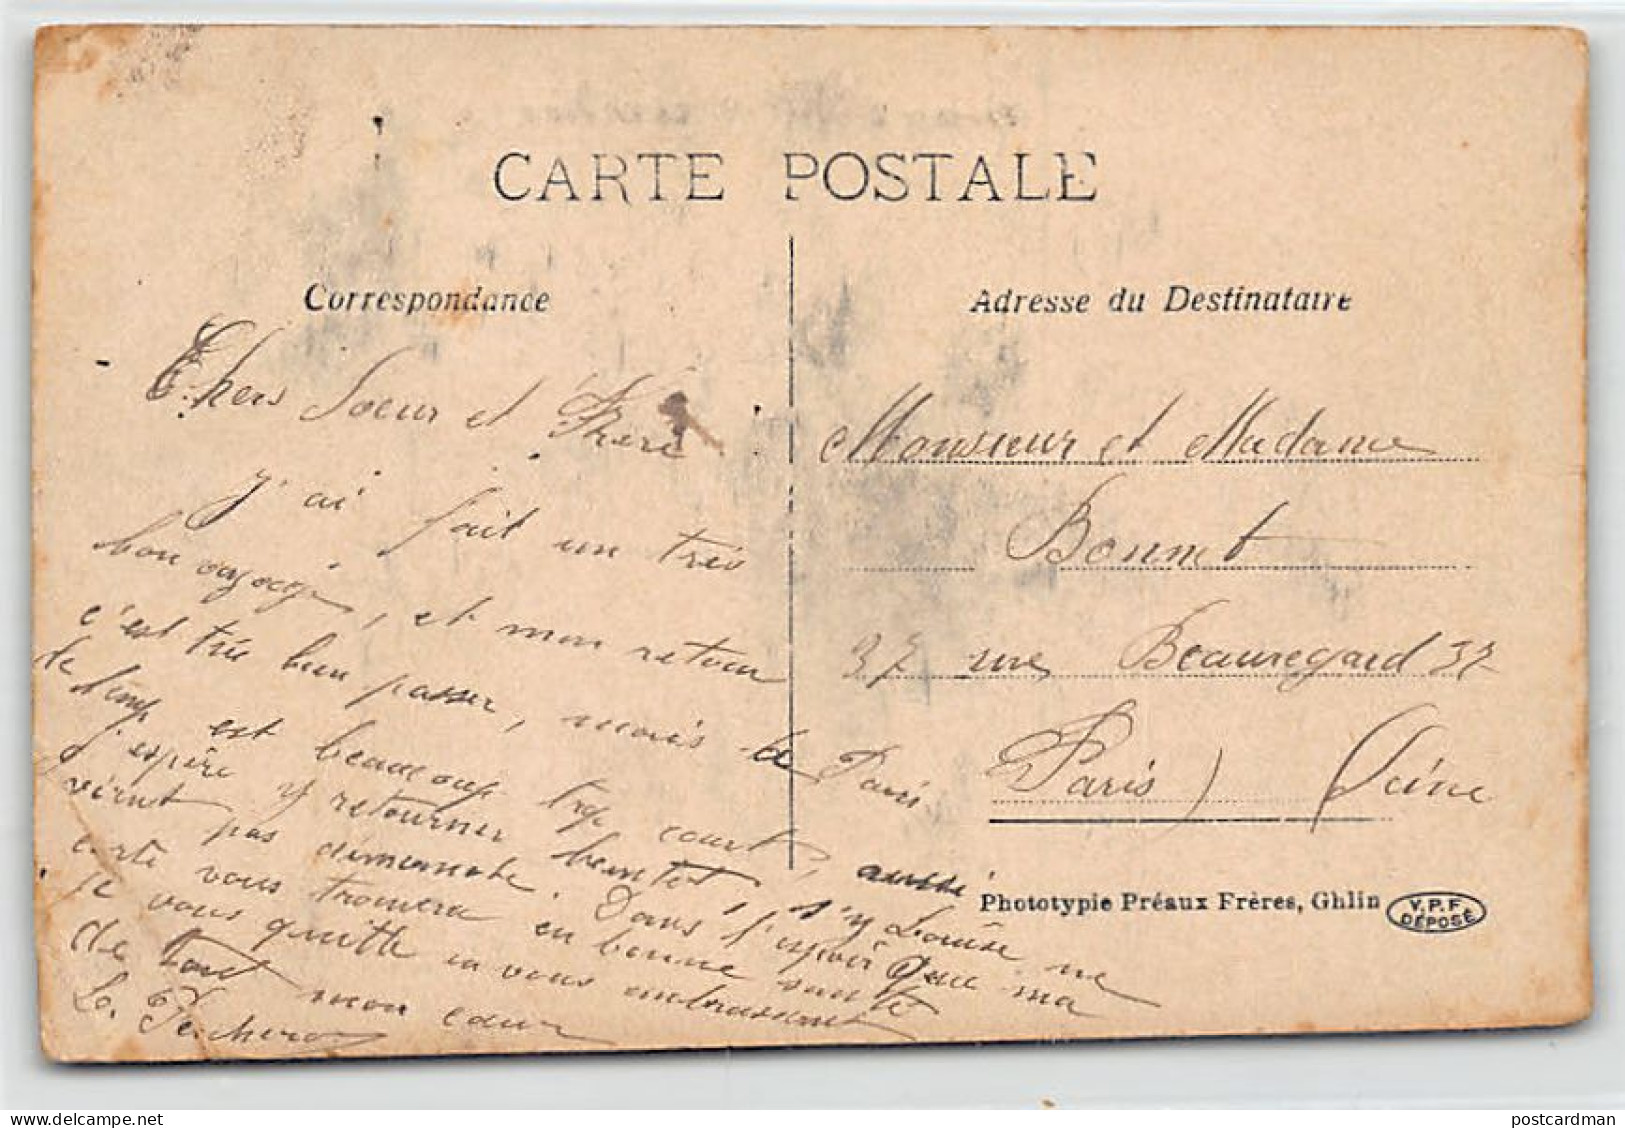 CARTE POSTALE
Correspondance
Chers Soeur et Frere
J'ai fait un très
bon voyage, et mon retour
c'est très bien passer, mais le
temp est beaucoup trop court, aussi
j'espère y retourner bientot, s'y Louise ne
vient pas démenate. Dans l'espoir que ma
carte vous trouvera en bonne santé
je vous quitte en vous embrassant
de tout mon cœur
Adresse du Destinataire
Monsieur et Madame
Bonnet
37 rue Beauregard 37
Paris
Paris) (Seine
Phototypie Préaux Frères, Ghlin
V.P.F
DÉPOSÉ
postcardman